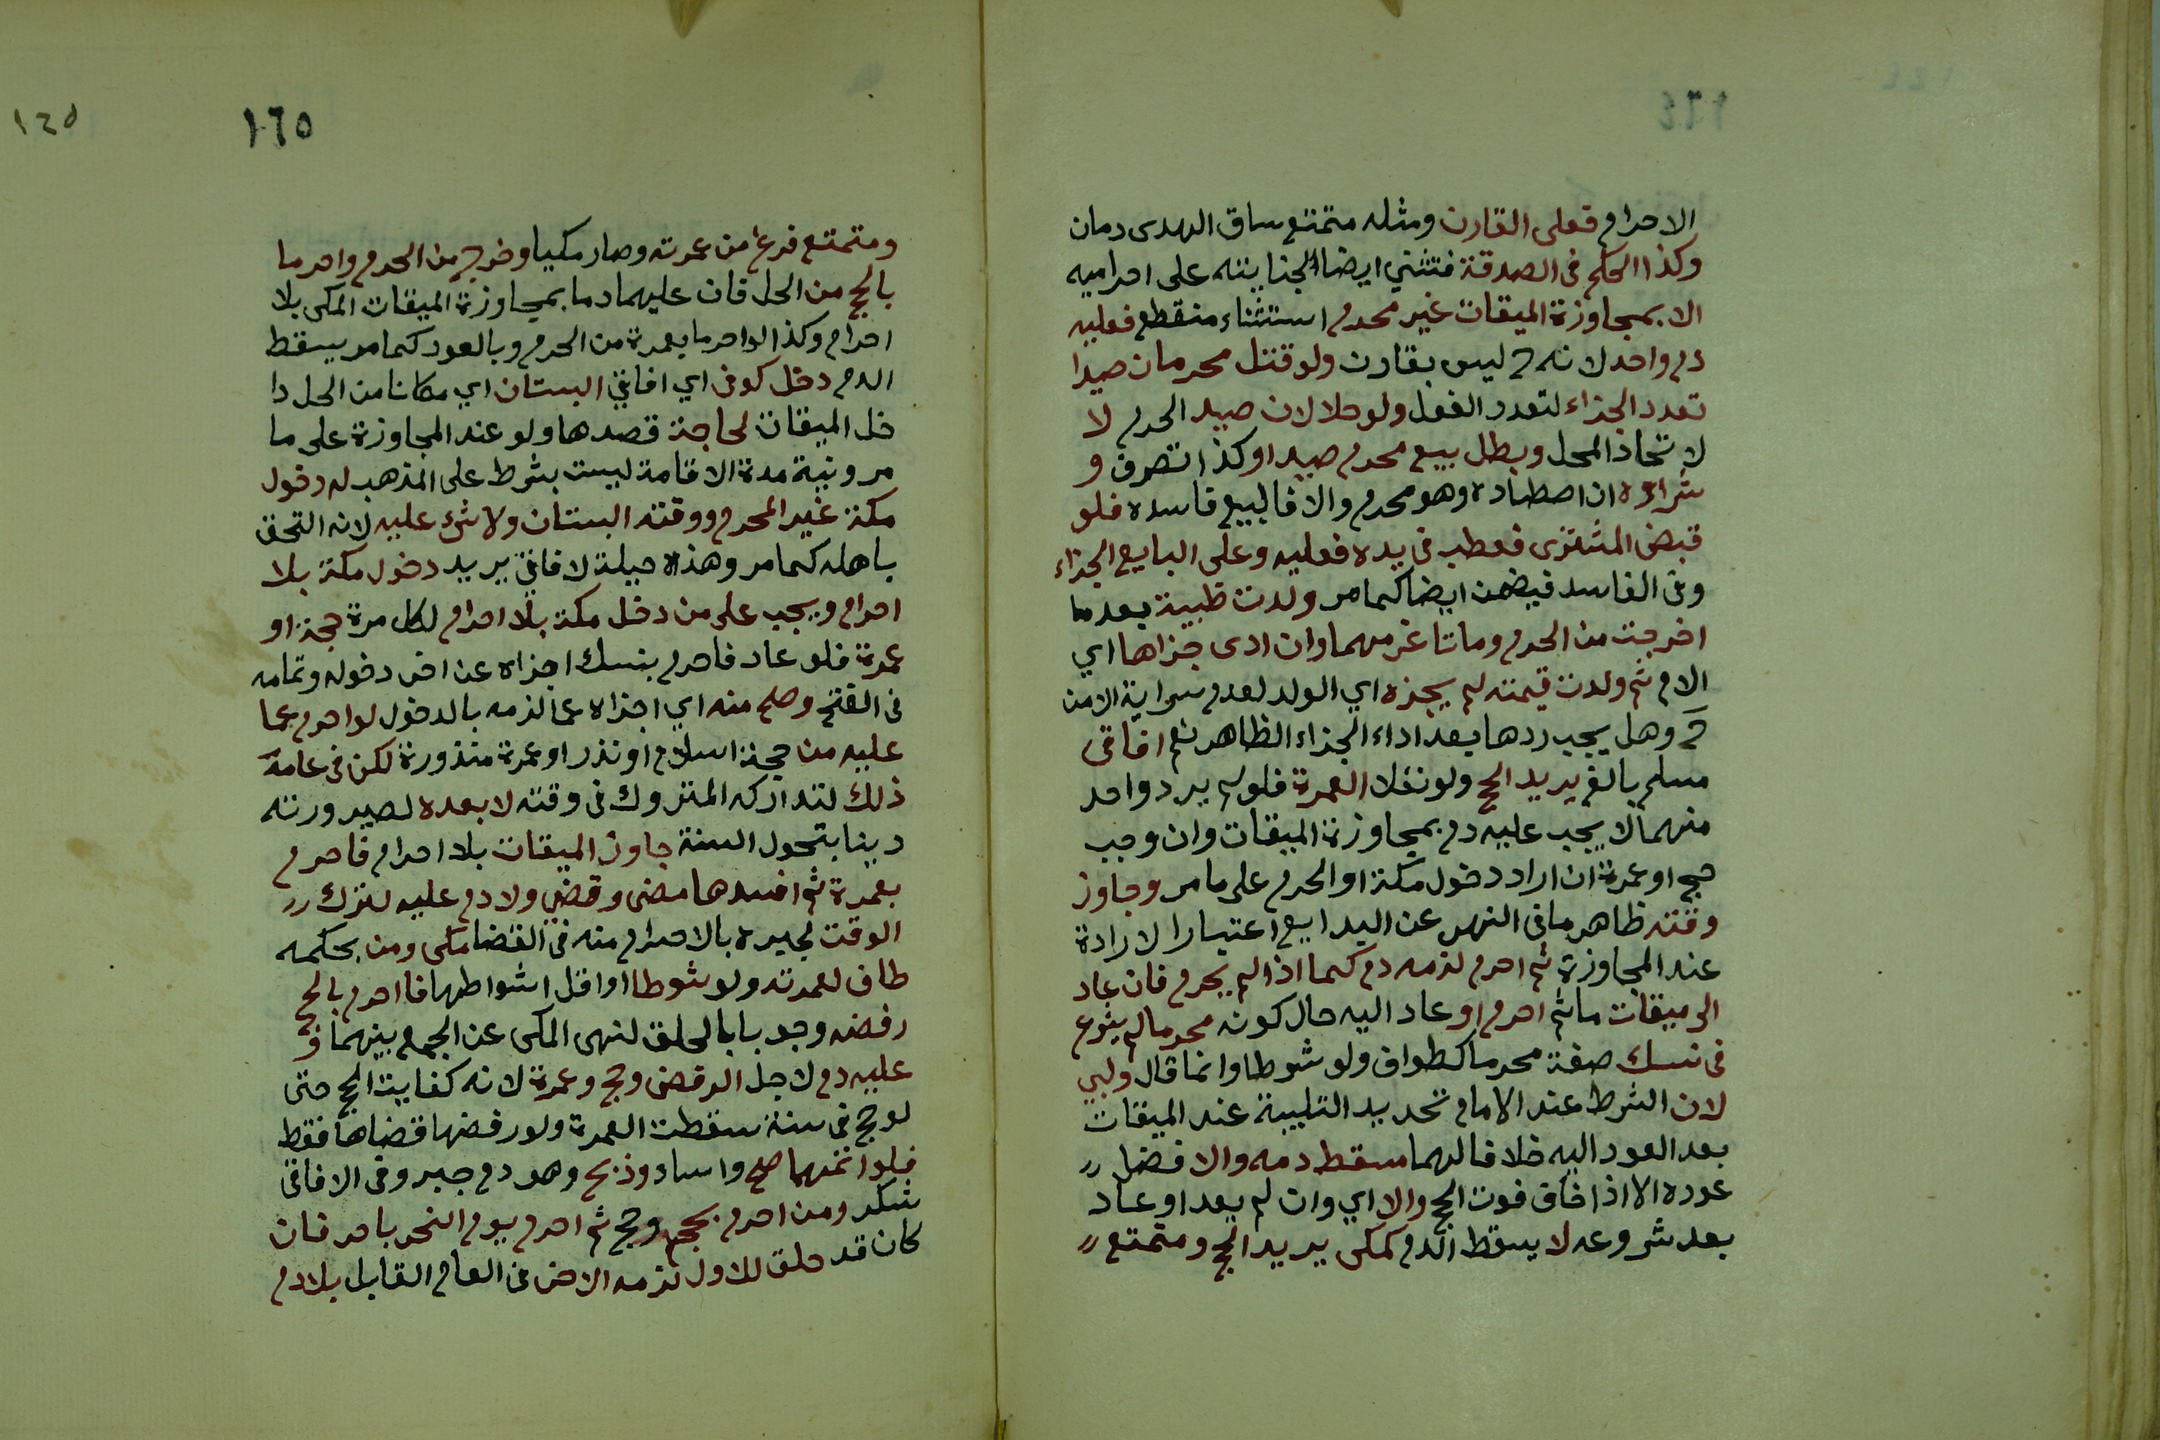 الاحرام فعلى القارن ومثله متمتع ساق الهدى دمان
وكذا الحكم فى الصدقة فتثنى ايضا لجنايته على احراميه
الا بمجاوزة الميقات غير محرم استثناء منقطع فعليه
دم واحد لانه ح ليس بقارن ولو قتل محرمان صيدا
تعدد الجزاء لتعدد الفعل ولو حلالان صيد الحرم لا
لاتحاد المحل وبطل بيع محرم صيدا وكذا تصرف و
شراؤه ان اصطاده وهو محرم والا فالبيع فاسده فلو
قبض المشترى فعطب فى يده فعليه وعلى البايع الجزاء
وفى الفاسد فيضمن ايضا كما مر ولدت ظبية بعد ما
اخرجت من الحرم وماتا غرمهما وان ادى جزاها اي
الام ثم ولدت قيمته لم يجزه اي الولد لعدم سراية الامن
ح وهل يجب ردها بعد اداء الجزاء الظاهر نعم افاقى
مسلم بالغ يريد الحج ولو نفلا العمرة فلو لم يرد واحد
منهما لا يجب عليه دم بمجاوزة الميقات وان وجب
حج او عمرة ان اراد دخول مكة او الحرم على ما مر وجاوز
وقته ظاهر ما فى النهر عن البدايع اعتبارا لارادة
عند المجاوزة ثم احرم لزمه دم كما اذا لم يحرم فان عاد
الى ميقات ما ثم احرم او عاد اليه حال كونه محرما لم يشرع
فى نسك صفة محرما كطواف ولو شوطا وانما قال ولبي
لان الشرط عند الامام تجديد التلبية عند الميقات
بعد العود اليه خلافا لهما سقط دمه والافضل
عوده الا اذا خاف فوت الحج والا اي وان لم يعد او عاد
بعد شروعه لا يسقط الدم كمكى يريد الحج ومتمتع
١٦٥
١٦٥
ومتمتع فرغ من عمرته وصار مكيا وخرج من الحرم واحرما
بالحج من الحل فان عليهما دما بمجاوزة الميقات المكى بلا
احرام وكذا لو احرما بعمرة من الحرم وبالعود كما مر يسقط
الدم دخل كوفى اي افاقي البستان اي مكانا من الحل دا
خل الميقات لحاجة قصدها ولو عند المجاوزة على ما
مر ونية مدة الاقامة ليست بشرط على المذهب له دخول
مكة غير المحرم ووقته البستان ولا شئ عليه لانه التحق
باهله كما مر وهذه حيلة لافاقي يريد دخول مكة بلا
احرام ويجب على من دخل مكة بلا احرام لكل مرة حجة او
عمرة فلو عاد فاحرم بنسك اجزاه عن اخر دخوله وتمامه
فى الفتح وصح منه اي اجزاه عما لزمه بالدخول لو احرم عما
عليه من حجة اسلام او نذر او عمرة منذورة لكن فى عامه
ذلك لتداركه المتروك فى وقته لا بعده لصيرورته
دينا بتحول السنة جاوز الميقات بلا احرام فاحرم
بعمرة ثم افسدها مضى وقضى ولا دم عليه لترك
الوقت لجبره بالاحرام منه فى القضا مكى ومن بحكمه
طاف لعمرته ولو شوطا او اقل اشواطها فاحرم بالحج
رفضه وجوبا بالحلق لنهى المكى عن الجمع بينهما و
عليه دم لاجل الرفض وحج وعمرة لانه كفايت الحج حتى
لو حج فى سنة سقطت العمرة ولو رفضها قضاها فقط
فلو اتمهما صح واساء وذبح وهو دم جبر وفى الافاقى
شكر ومن احرم بحج وحج ثم احرم يوم النحر باخر فان
كان قد حلق للاول لزمه الاخر فى العام القابل بلا دم